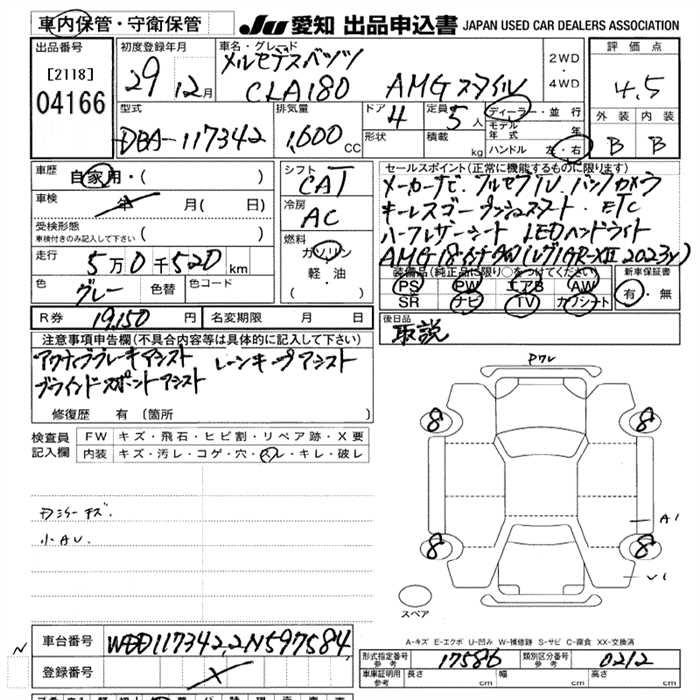 車内保管・守衛保管
JU 愛知 出品申込書 JAPAN USED CAR DEALERS ASSOCIATION
出品番号
[2118]
04166
初度登録年月
29 12月
車名・グレード
メルセデスベンツ
CLA180 AMGスタイル
2WD
・
4WD
評価点
4.5
外装 内装
B B
型式
DBA-117342
排気量
1,600 CC
ドア
4
形状
定員
5人
積載 kg
ディーラー・並行
モデル年式 年
ハンドル 左・右
車歴 自家用・( )
車検 年 月( 日)
受検形態
車検付きのみ記入して下さい ( )
走行 5万0千520 km
色 グレー 色替 色コード
R券 19,150円 名変期限 月 日
シフト
CAT
冷房
AC
燃料
ガソリン
軽・油
( )
セールスポイント(正常に機能するものに限ります)
メーカーナビ.フルセグTV.バックカメラ
キーレスゴー プッシュスタート.ETC
ハーフレザーシート LEDヘッドライト
装備品(純正品に限り○をつけてください)
PS PW エアB AW
SR ナビ TV カワシート
新車保証書
有・無
後日品
取説
注意事項申告欄(不具合内容等は具体的に記入して下さい)
アクティブブレーキアシスト レーンキープアシスト
ブラインドスポットアシスト
修復歴 有(箇所 )
検査員記入欄
FW キズ・飛石・ヒビ割・リペア跡・X要
内装 キズ・汚レ・コゲ・穴・スレ・キレ・破レ
小AU.
P7レ
8 8
8 8
A1
スペア
A-キズ E-エクボ U-凹み W-補修跡 S-サビ C-腐食 XX-交換済
N
車台番号 WDD1173422N597584
登録番号
型式指定番号 参考 17586
類別区分番号 参考 0212
車庫証明用 参考 長さ cm 幅 cm 高さ cm